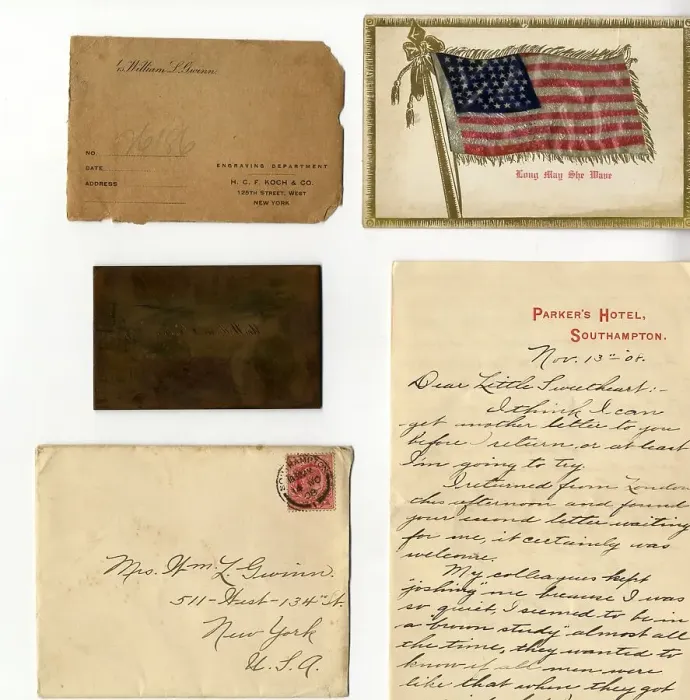 Mrs. William L. Gwinn.
NO.
DATE
ADDRESS
ENGRAVING DEPARTMENT
H. C. F. KOCH & CO.
125TH STREET, WEST
NEW YORK
Long May She Wave
PARKER'S HOTEL,
SOUTHAMPTON.
Nov. 13th '08.
Dear Little Sweetheart:-
I think I can
get another letter to you
before I return, or at least
I'm going to try.
I returned from London
this afternoon and found
your second letter waiting
for me, it certainly was
welcome.
My colleagues kept
"joshing" me because I was
so quiet, I seemed to be in
a "brown study" almost all
the time, they wanted to
know if all men were
like that when they got
SOUTHAMPTON
14 NO
08
Mrs. Wm. L. Gwinn.
511-West-134th St.
New York
U.S.A.